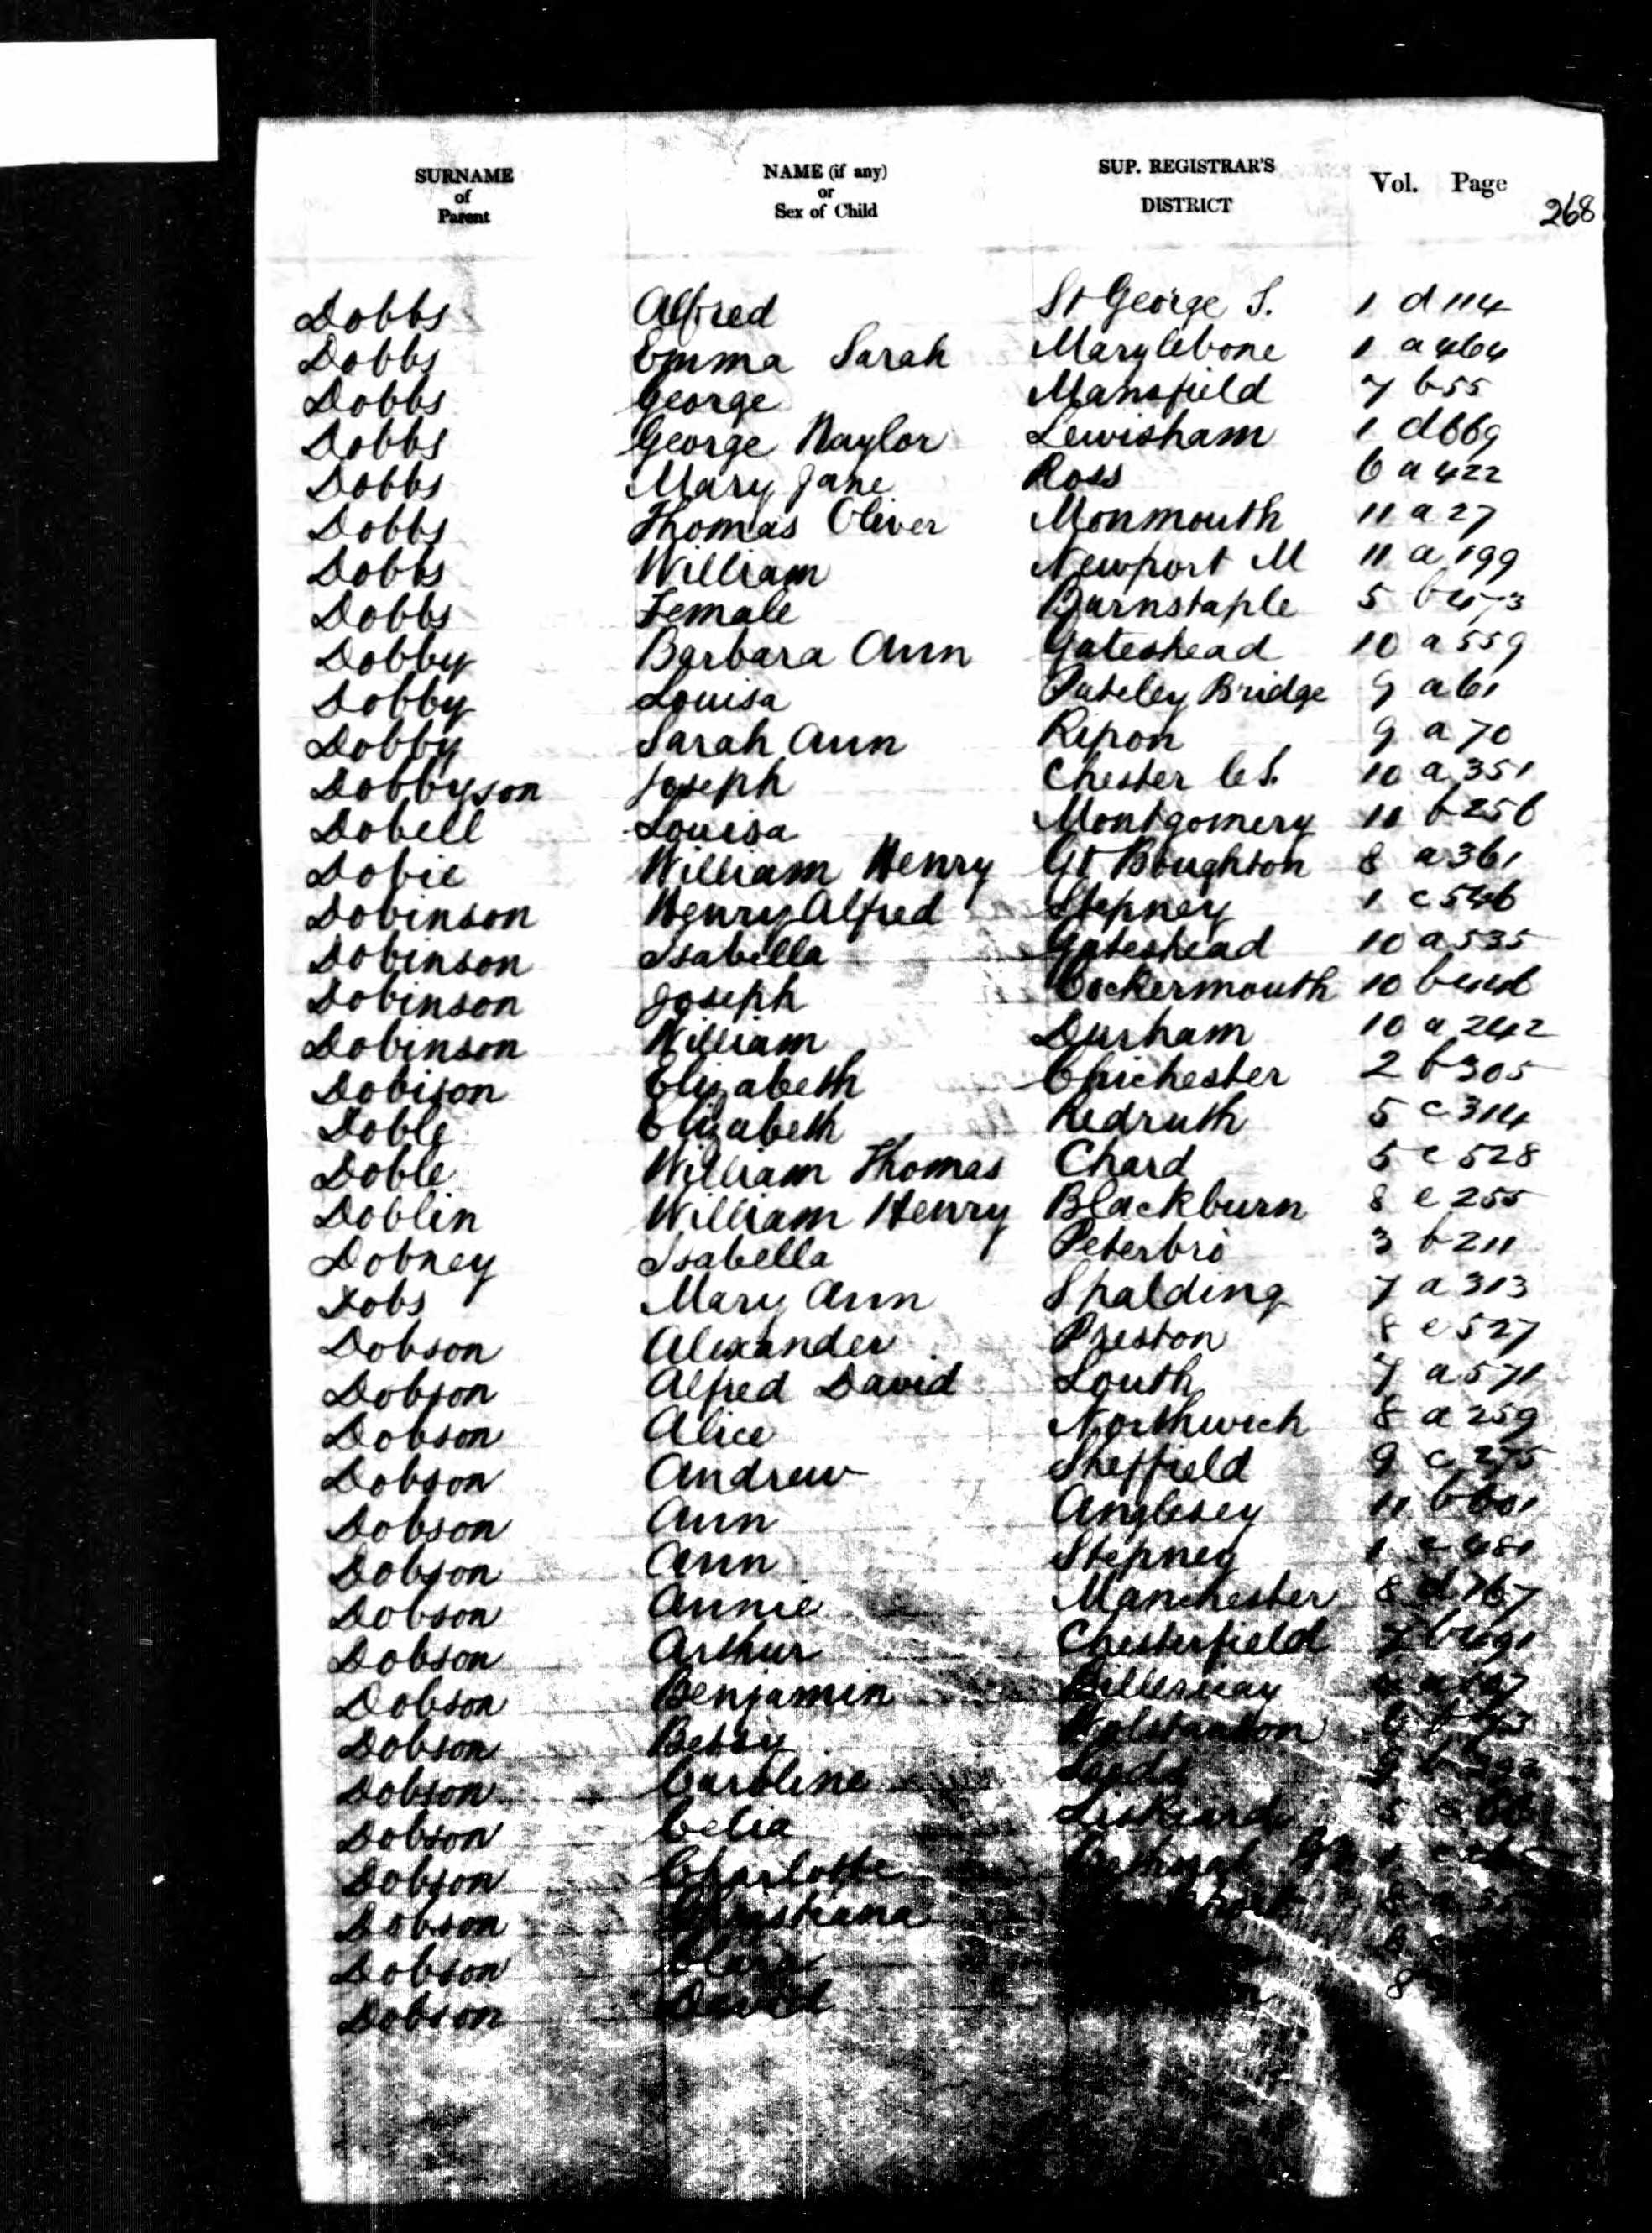 SURNAME of Parent NAME (if any) or Sex of Child SUP. REGISTRAR'S DISTRICT Vol. Page
268
Dobbs Alfred St George S. 1 d 114
Dobbs Emma Sarah Marylebone 1 a 464
Dobbs George Mansfield 7 b 55
Dobbs George Naylor Lewisham 1 d 669
Dobbs Mary Jane Ross 6 a 422
Dobbs Thomas Oliver Monmouth 11 a 27
Dobbs William Newport M 11 a 199
Dobbs Female Barnstaple 5 b 473
Dobby Barbara Ann Gateshead 10 a 559
Dobby Louisa Pateley Bridge 9 a 61
Dobby Sarah Ann Ripon 9 a 70
Dobbyson Joseph Chester le S. 10 a 351
Dobell Louisa Montgomery 11 b 256
Dobie William Henry Gt Boughton 8 a 361
Dobinson Henry Alfred Stepney 1 c 546
Dobinson Isabella Gateshead 10 a 535
Dobinson Joseph Cockermouth 10 b 446
Dobinson William Durham 10 a 242
Dobison Elizabeth Chichester 2 b 305
Doble Elizabeth Redruth 5 c 314
Doble William Thomas Chard 5 c 528
Doblin William Henry Blackburn 8 e 255
Dobney Isabella Peterbro 3 b 211
Dobs Mary Ann Spalding 7 a 313
Dobson Alexander Preston 8 e 527
Dobson Alfred David Louth 7 a 571
Dobson Alice Northwich 8 a 259
Dobson Andrew Sheffield 9 c 275
Dobson Ann Anglesey 11 b 601
Dobson Ann Stepney 1 c 481
Dobson Annie Manchester 8 d 167
Dobson Arthur Chesterfield 7 b 491
Dobson Benjamin Billericay
Dobson Betsy Wolstanton 6 b
Dobson Caroline Leeds 9 b
Dobson Celia Liskeard 5 c
Dobson Charlotte Bethnal Gn 1 c
Dobson Christiana 8
Dobson Clara 6
Dobson David 8